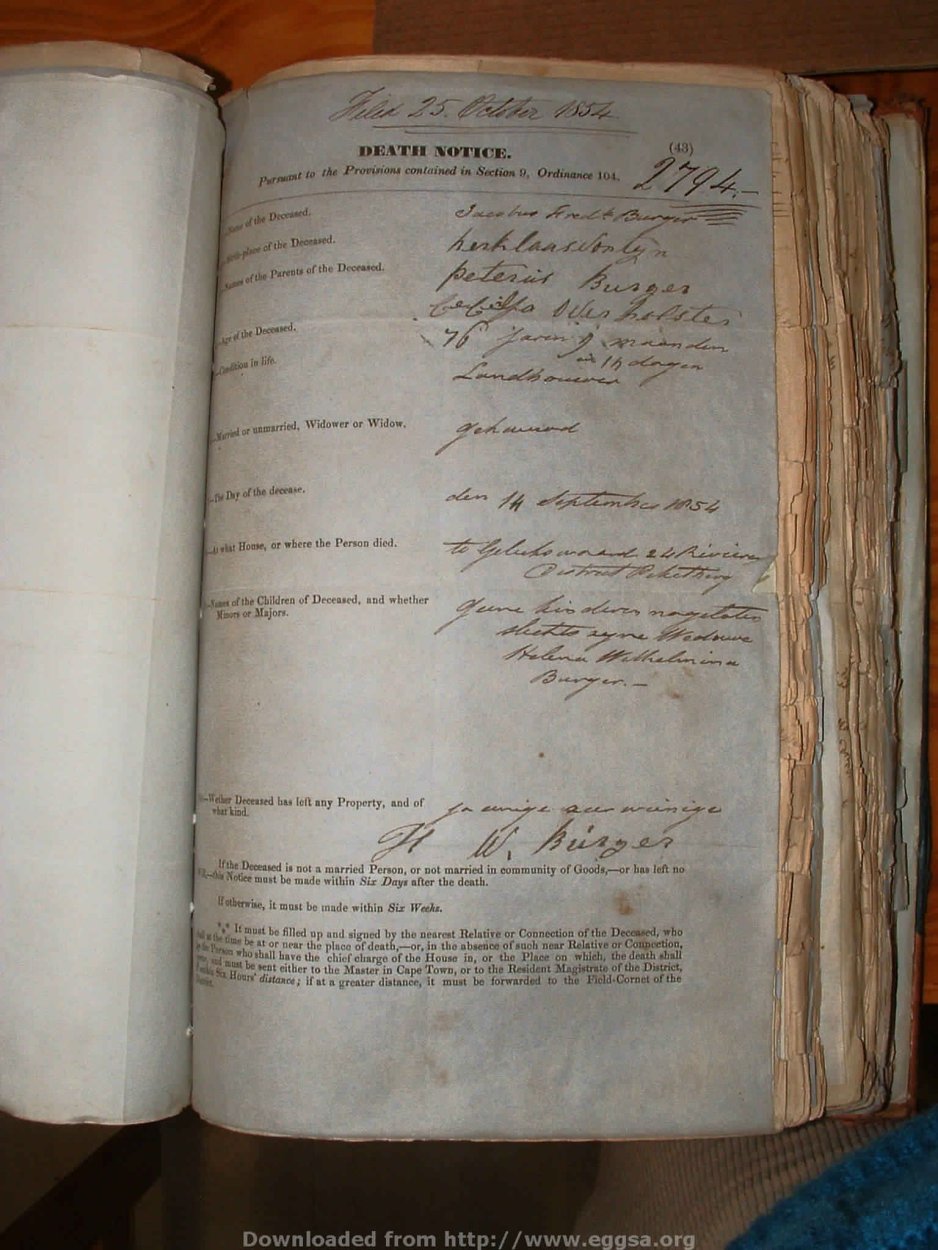 Filed 25. October 1854
DEATH NOTICE.
(43)
Pursuant to the Provisions contained in Section 9, Ordinance 104.
2794.-
Name of the Deceased.
Jacobus Fredk Burger
Birth-place of the Deceased.
Names of the Parents of the Deceased.
peterus Burger
Overholster
Age of the Deceased.
76 Jaren 9 maanden
en 14 dagen
Condition in life.
Landbouwer
Married or unmarried, Widower or Widow.
gehuuwd
The Day of the decease.
den 14 September 1854
At what House, or where the Person died.
te Gelukswaard 24 Rivieren
District Piketberg
Names of the Children of Deceased, and whether
Minors or Majors.
Geene kinderen nagelaten
slechts zyne Weduwe
Helena Wilhelmina
Burger.-
Wether Deceased has left any Property, and of
what kind.
Ja eenige
H W. Burger
If the Deceased is not a married Person, or not married in community of Goods,—or has left no
—this Notice must be made within Six Days after the death.
If otherwise, it must be made within Six Weeks.
*** It must be filled up and signed by the nearest Relative or Connection of the Deceased, who
shall at the time be at or near the place of death,—or, in the absence of such near Relative or Connection,
by the Person who shall have the chief charge of the House in, or the Place on which, the death shall
and must be sent either to the Master in Cape Town, or to the Resident Magistrate of the District,
Six Hours' distance; if at a greater distance, it must be forwarded to the Field-Cornet of the
Downloaded from http://www.eggsa.org